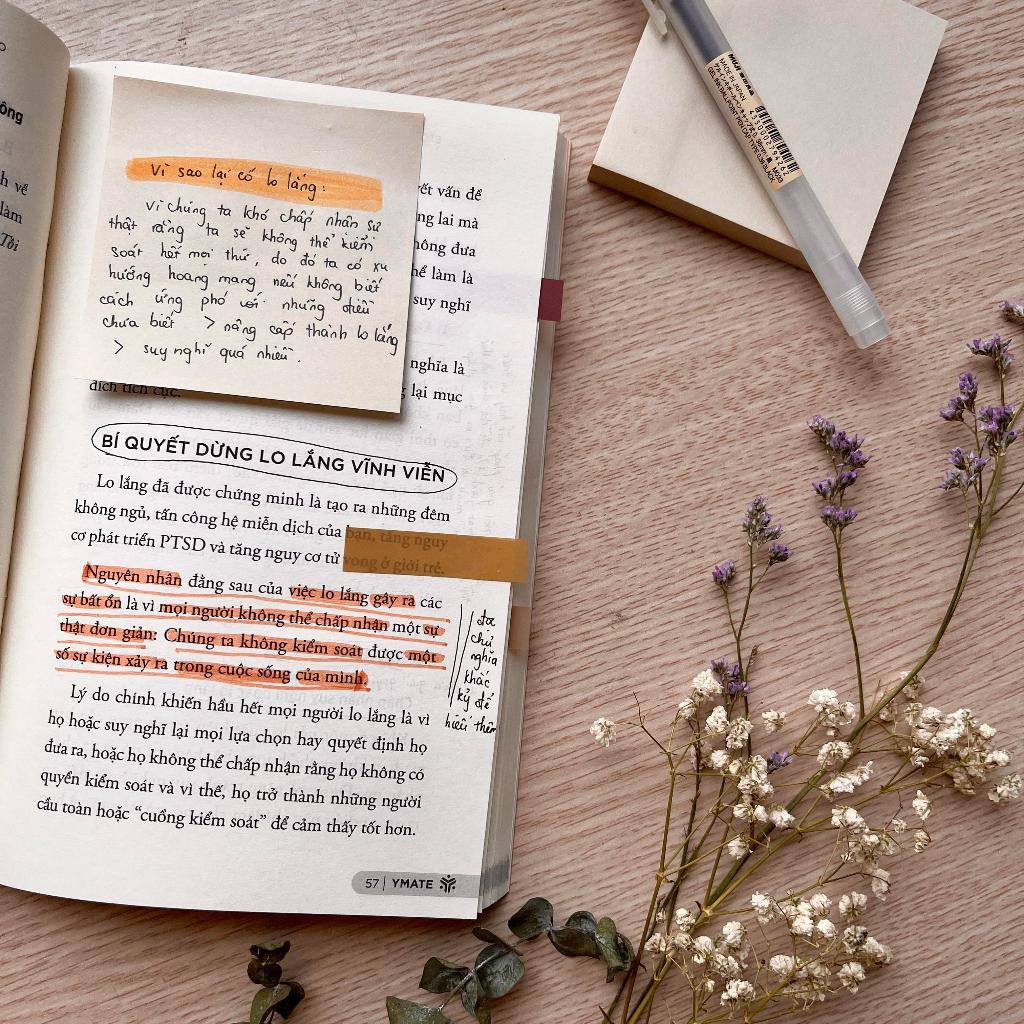 ông
h về
làm
Tôi
Vì sao lại có lo lắng:
Vì chúng ta khó chấp nhận sự
thật rằng ta sẽ không thể kiểm
soát hết mọi thứ, do đó ta có xu
hướng hoang mang nếu không biết
cách ứng phó với những điều
chưa biết > nâng cấp thành lo lắng
> suy nghĩ quá nhiều.
yết vấn đề
ng lai mà
hông đưa
hể làm là
suy nghĩ
nghĩa là
lại mục
đích tích cực.
BÍ QUYẾT DỪNG LO LẮNG VĨNH VIỄN
Lo lắng đã được chứng minh là tạo ra những đêm
không ngủ, tấn công hệ miễn dịch của bạn, tăng nguy
cơ phát triển PTSD và tăng nguy cơ tử vong ở giới trẻ.
Nguyên nhân đằng sau của việc lo lắng gây ra các
sự bất ổn là vì mọi người không thể chấp nhận một sự
thật đơn giản: Chúng ta không kiểm soát được một
số sự kiện xảy ra trong cuộc sống của mình.
Lý do chính khiến hầu hết mọi người lo lắng là vì
họ hoặc suy nghĩ lại mọi lựa chọn hay quyết định họ
đưa ra, hoặc họ không thể chấp nhận rằng họ không có
quyền kiểm soát và vì thế, họ trở thành những người
cầu toàn hoặc "cuồng kiểm soát" để cảm thấy tốt hơn.
chủ
nghĩa
khắc
kỷ để
hiểu thêm
57 | YMATE
MUJI 無印良品
MADE IN JAPAN
GEL INK BALLPOINT PEN CAP TYPE 0.38 BLACK